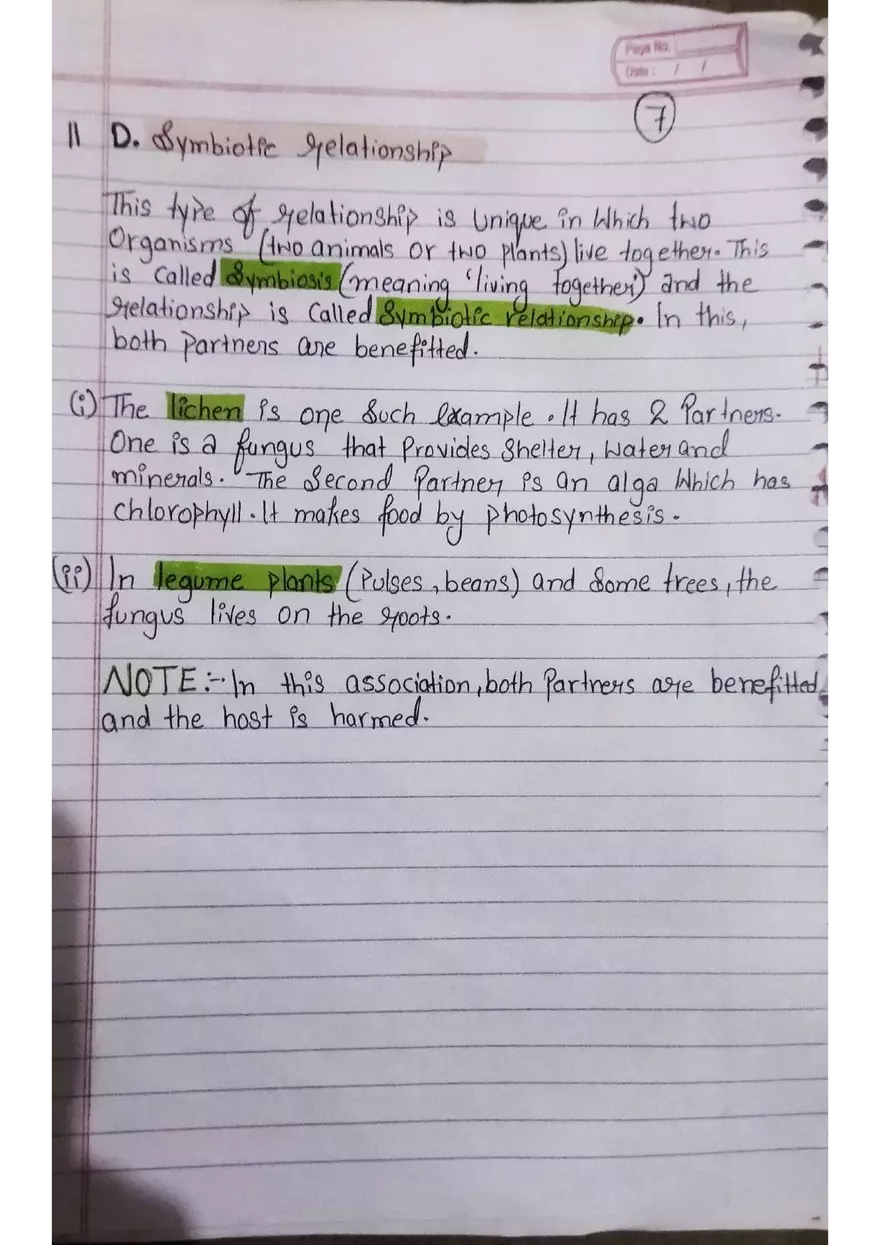 Page No.
Date: / /
7
11 D. Symbiotic relationship
This type of relationship is unique in which two
Organisms (two animals or two plants) live together. This
is called Symbiosis (meaning 'living together) and the
relationship is called Symbiotic relationship. In this,
both partners are benefitted.
(i) The lichen is one such example. It has 2 Partners.
One is a fungus that provides shelter, water and
minerals. The second partner is an alga which has
chlorophyll. It makes food by photosynthesis.
(ii) In legume plants (Pulses, beans) and some trees, the
fungus lives on the roots.
NOTE:- In this association, both partners are benefitted
and the host is harmed.